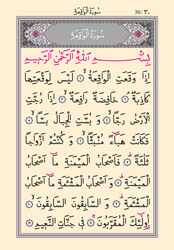 سُورَةُ الْوَاقِعَةِ
30/ ٣٠
سُورَةُ الْوَاقِعَةِ
بِسْمِ اللّٰهِ الرَّحْمٰنِ الرَّحِيمِ
إِذَا وَقَعَتِ الْوَاقِعَةُ لَيْسَ لِوَقْعَتِهَا
كَاذِبَةٌ خَافِضَةٌ رَافِعَةٌ إِذَا رُجَّتِ
الْأَرْضُ رَجًّا وَبُسَّتِ الْجِبَالُ بَسًّا
فَكَانَتْ هَبَاءً مُنْبَثًّا وَكُنْتُمْ أَزْوَاجًا
ثَلٰثَةً فَأَصْحَابُ الْمَيْمَنَةِ مَا أَصْحَابُ
الْمَيْمَنَةِ وَأَصْحَابُ الْمَشْئَمَةِ مَا أَصْحَابُ
الْمَشْئَمَةِ وَالسَّابِقُونَ السَّابِقُونَ
أُولٰئِكَ الْمُقَرَّبُونَ فِي جَنَّاتِ النَّعِيمِ